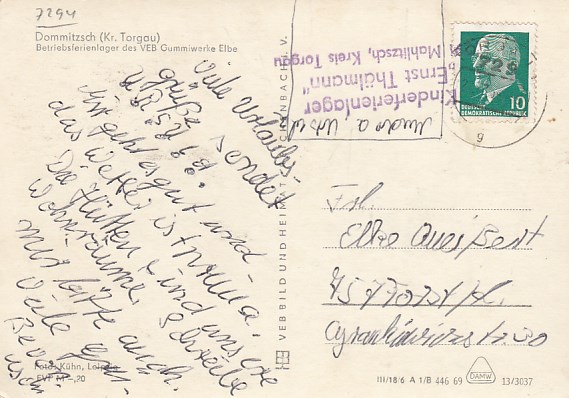 7294
Dommitzsch (Kr. Torgau)
Betriebsferienlager des VEB Gummiwerke Elbe
Viele Urlaubs-
grüße sendet
Mir geht es gut und
das Wetter ist prima.
Die Hütten sind unsere
Wohnräume. Schreibe
mir bitte auch.
Viele
Foto: Kühn, Leipzig
EVP M -,20
VEB BILD UND HEIMAT REICHENBACH I. V.
Kinderferienlager
"Ernst Thälmann"
Mahlitzsch, Kreis Torgau
729
g
10
DEUTSCHE
DEMOKRATISCHE REPUBLIK
Frl.
Elke Queißert
75 Forst /L.
30
III/18/6 A 1/B 446 69
DAMW
13/3037